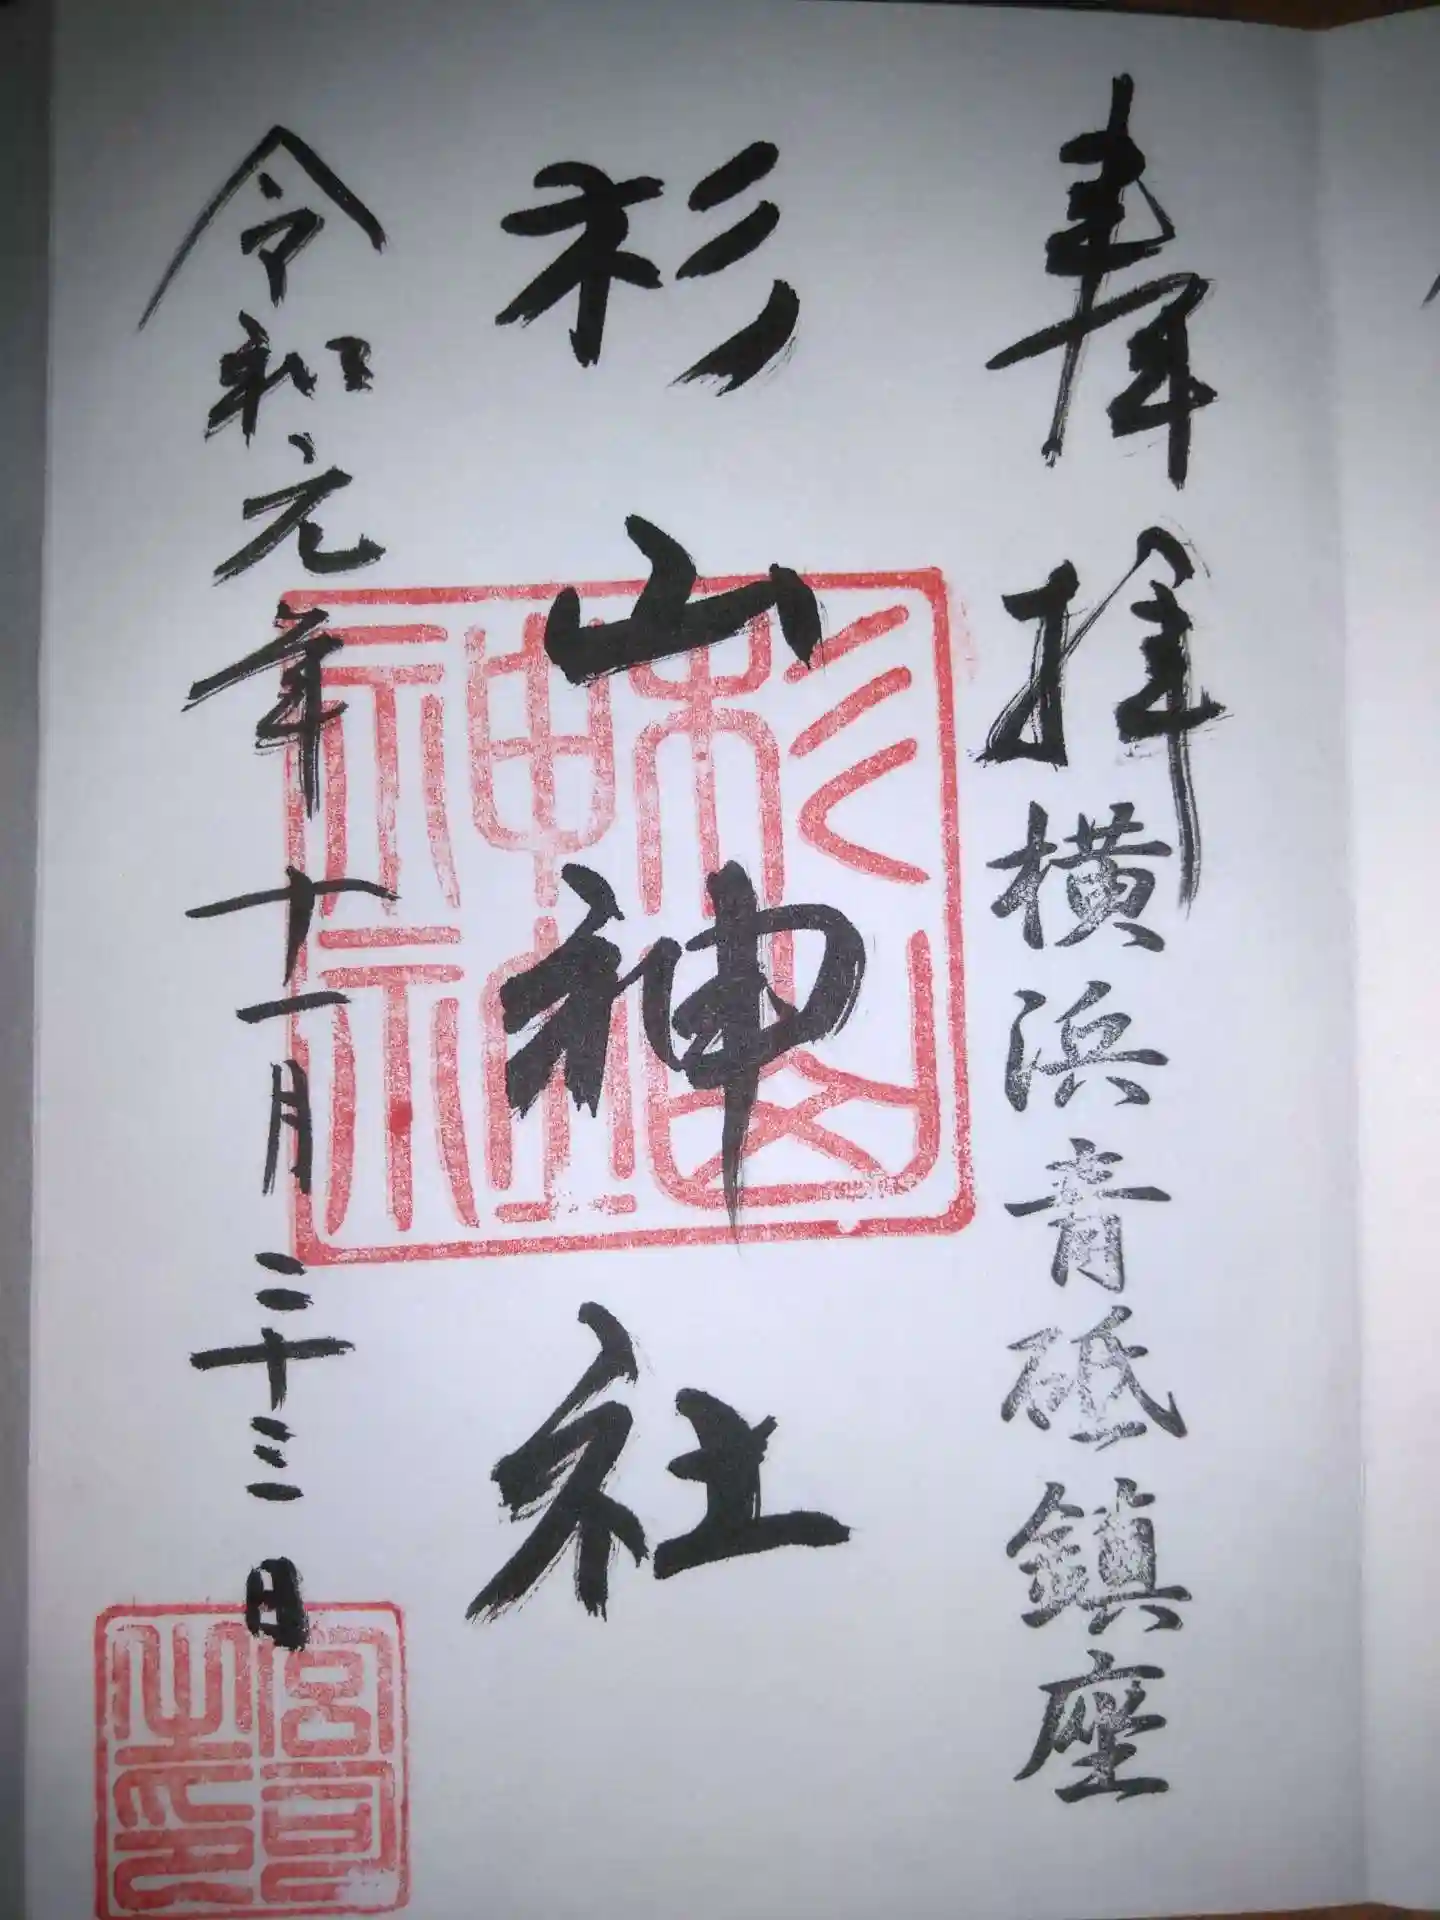 奉拝
横浜青砥鎮座
杉山神社
杉山神社
令和元年十一月二十三日
宮司之印